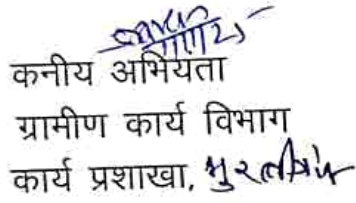 कनीय अभियता
ग्रामीण कार्य विभाग
कार्य प्रशाखा,